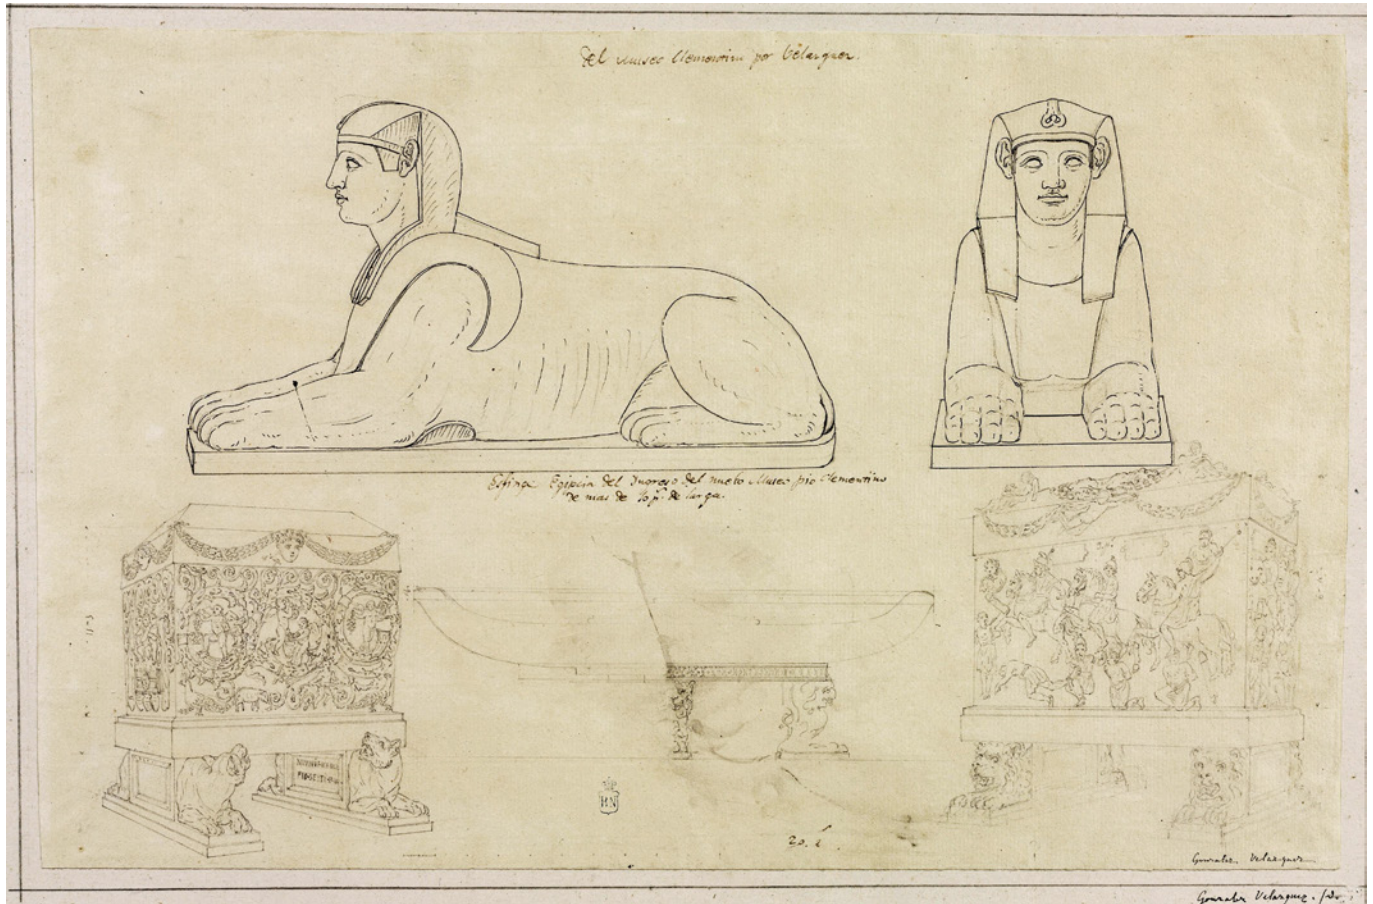 del museo Clementin por Velazquez.
Esfinge Egipcia del Ingreso del nuebo Museo pio Clementino
de mas de 10 p.s de larga.
20. L
BN
Gonzalez Velazquez
Gonzalez Velazquez.